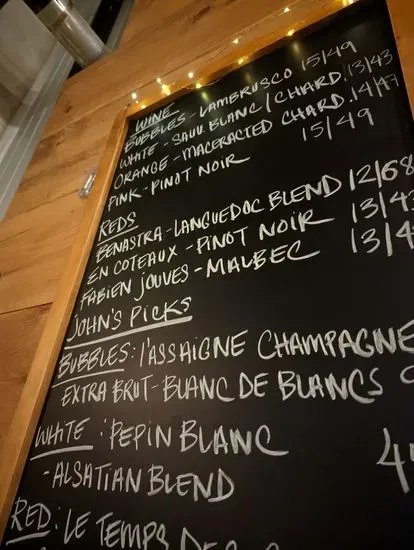 WINE
BUBBLES - LAMBRUSCO 15/49
WHITE - SAUV. BLANC / CHARD. 13/43
ORANGE - MACERACTED CHARD. 14/47
PINK - PINOT NOIR 15/49
REDS
BENASTRA - LANGUEDOC BLEND 12/68
EN COTEAUX - PINOT NOIR 13/4
FABIEN JOUVES - MALBEC 13/4
JOHN'S PICKS
BUBBLES: L'ASSAIGNE CHAMPAGNE
EXTRA BRUT - BLANC DE BLANCS
WHITE: PEPIN BLANC
- ALSATIAN BLEND
RED: LE TEMPS